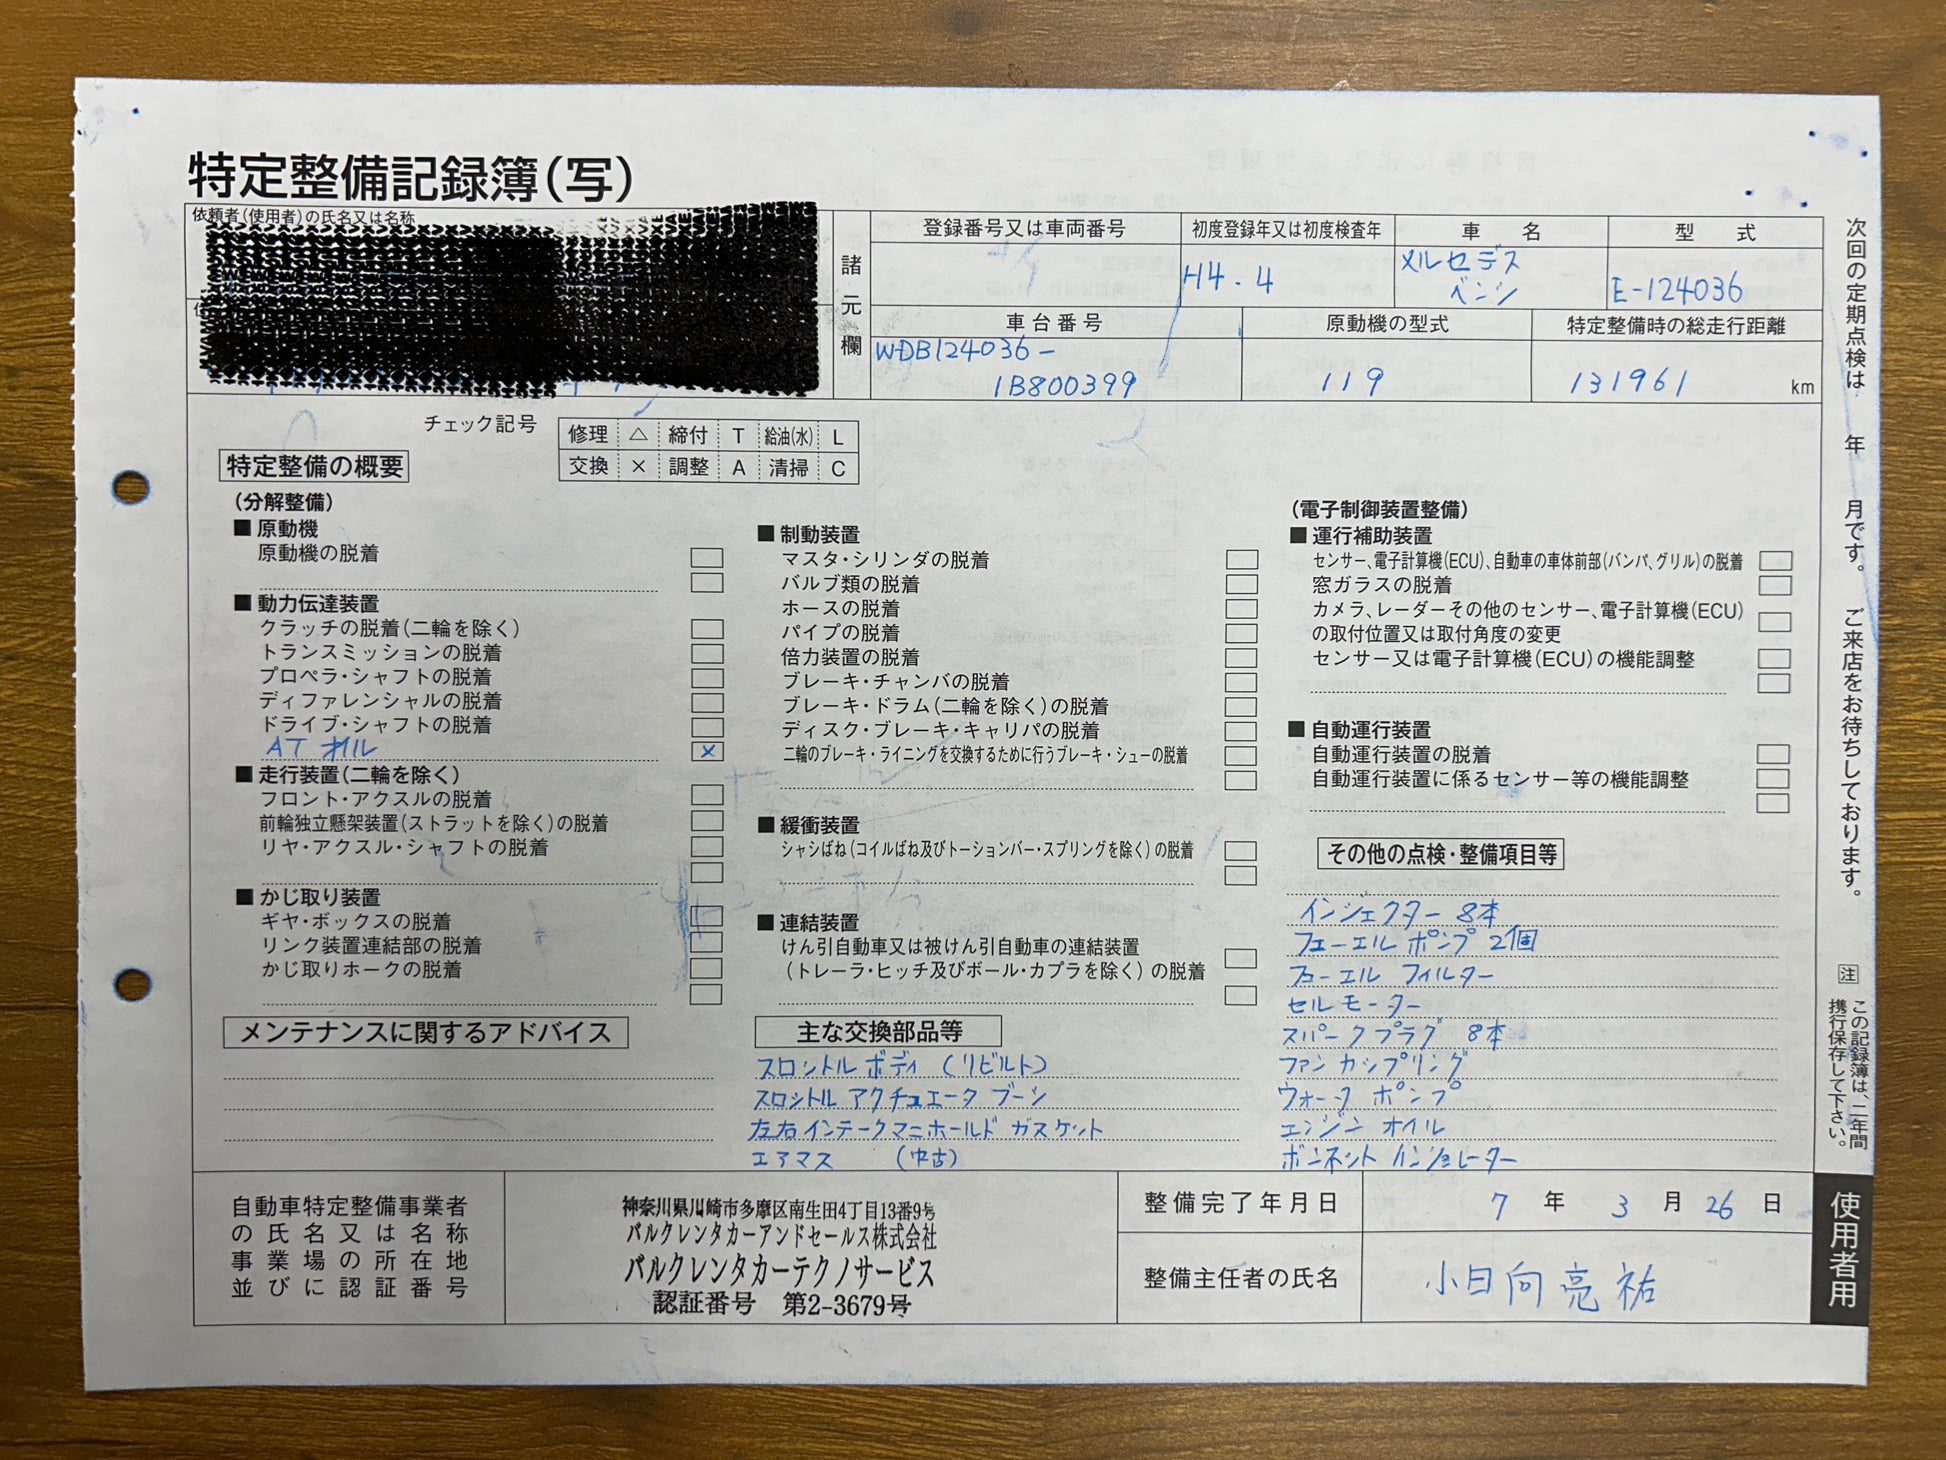 特定整備記録簿(写)
依頼者(使用者)の氏名又は名称
諸元欄
登録番号又は車両番号
初度登録年又は初度検査年
H4.4
車名
メルセデス
ベンツ
型式
E-124036
車台番号
WDB124036-
1B800399
原動機の型式
119
特定整備時の総走行距離
131961 km
チェック記号
修理 △ 締付 T 給油(水) L
交換 × 調整 A 清掃 C
特定整備の概要
(分解整備)
■ 原動機
原動機の脱着
■ 動力伝達装置
クラッチの脱着(二輪を除く)
トランスミッションの脱着
プロペラ・シャフトの脱着
ディファレンシャルの脱着
ドライブ・シャフトの脱着
AT オイル ×
■ 走行装置(二輪を除く)
フロント・アクスルの脱着
前輪独立懸架装置(ストラットを除く)の脱着
リヤ・アクスル・シャフトの脱着
■ かじ取り装置
ギヤ・ボックスの脱着
リンク装置連結部の脱着
かじ取りホークの脱着
■ 制動装置
マスタ・シリンダの脱着
バルブ類の脱着
ホースの脱着
パイプの脱着
倍力装置の脱着
ブレーキ・チャンバの脱着
ブレーキ・ドラム(二輪を除く)の脱着
ディスク・ブレーキ・キャリパの脱着
二輪のブレーキ・ライニングを交換するために行うブレーキ・シューの脱着
■ 緩衝装置
シャシばね(コイルばね及びトーションバー・スプリングを除く)の脱着
■ 連結装置
けん引自動車又は被けん引自動車の連結装置
(トレーラ・ヒッチ及びボール・カプラを除く)の脱着
(電子制御装置整備)
■ 運行補助装置
センサー、電子計算機(ECU)、自動車の車体前部(バンパ、グリル)の脱着
窓ガラスの脱着
カメラ、レーダーその他のセンサー、電子計算機(ECU)
の取付位置又は取付角度の変更
センサー又は電子計算機(ECU)の機能調整
■ 自動運行装置
自動運行装置の脱着
自動運行装置に係るセンサー等の機能調整
その他の点検・整備項目等
インジェクター 8本
フューエル ポンプ 2個
フューエル フィルター
セルモーター
スパークプラグ 8本
ファン カップリング
ウォーター ポンプ
エンジン オイル
ボンネット インシュレーター
メンテナンスに関するアドバイス
主な交換部品等
スロットル ボディ (リビルト)
スロットル アクチュエータ ブーツ
左右インテークマニホールド ガスケット
エアマス (中古)
自動車特定整備事業者
の氏名又は名称
事業場の所在地
並びに認証番号
神奈川県川崎市多摩区南生田4丁目13番9号
バルクレンタカーアンドセールス株式会社
バルクレンタカーテクノサービス
認証番号 第2-3679号
整備完了年月日
7 年 3 月 26 日
整備主任者の氏名
小日向亮祐
次回の定期点検は 年 月です。 ご来店をお待ちしております。
注 この記録簿は、二年間
携行保存して下さい。
使用者用